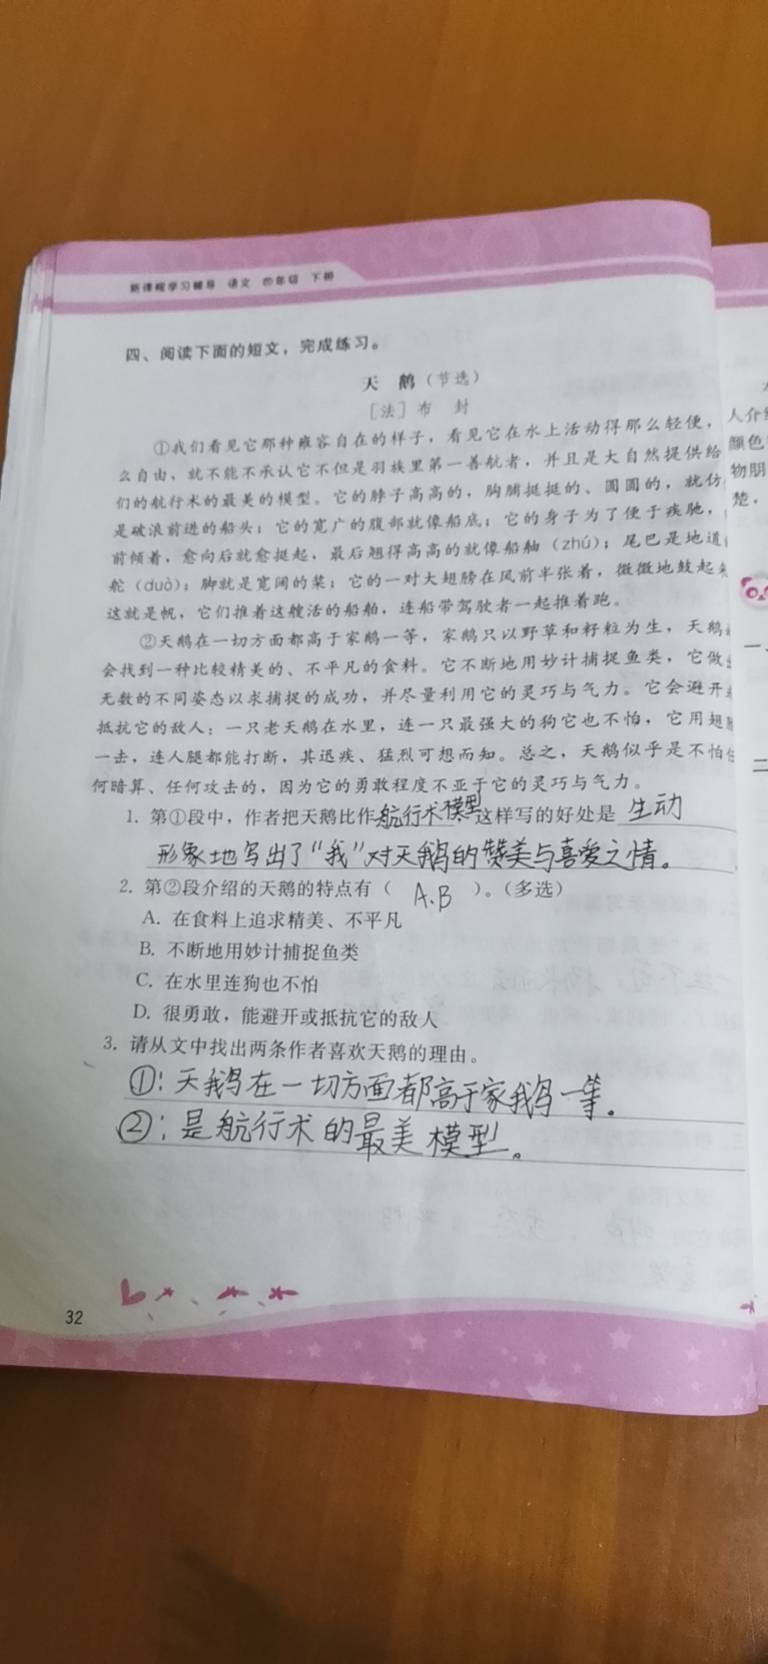 新课程学习辅导 语文 四年级 下册
四、阅读下面的短文，完成练习。
天 鹅（节选）
［法］布 封
①我们看见它那种雍容自在的样子，看见它在水上活动得那么轻便，
么自由，就不能不承认它不但是羽族里第一善航者，并且是大自然提供给
们的航行术的最美的模型。它的脖子高高的，胸脯挺挺的、圆圆的，就仿
是破浪前进的船头；它的宽广的腹部就像船底；它的身子为了便于疾驰，
前倾着，愈向后就愈挺起，最后翘得高高的就像船舳（zhú）；尾巴是地道
舵（duò）；脚就是宽阔的桨；它的一对大翅膀在风前半张着，微微地鼓起来
这就是帆，它们推着这艘活的船舶，连船带驾驶者一起推着跑。
②天鹅在一切方面都高于家鹅一等，家鹅只以野草和籽粒为生，天鹅
会找到一种比较精美的、不平凡的食料。它不断地用妙计捕捉鱼类，它做
无数的不同姿态以求捕捉的成功，并尽量利用它的灵巧与气力。它会避开
抵抗它的敌人：一只老天鹅在水里，连一只最强大的狗它也不怕，它用翅
一击，连人腿都能打断，其迅疾、猛烈可想而知。总之，天鹅似乎是不怕
何暗算、任何攻击的，因为它的勇敢程度不亚于它的灵巧与气力。
1. 第①段中，作者把天鹅比作航行术模型，这样写的好处是 生动
形象地写出了“我”对天鹅的赞美与喜爱之情。
2. 第②段介绍的天鹅的特点有（ A.B ）。（多选）
A. 在食料上追求精美、不平凡
B. 不断地用妙计捕捉鱼类
C. 在水里连狗也不怕
D. 很勇敢，能避开或抵抗它的敌人
3. 请从文中找出两条作者喜欢天鹅的理由。
①：天鹅在一切方面都高于家鹅一等。
②：是航行术的最美模型。
32
人介
颜色
物朋
楚，
一、
二